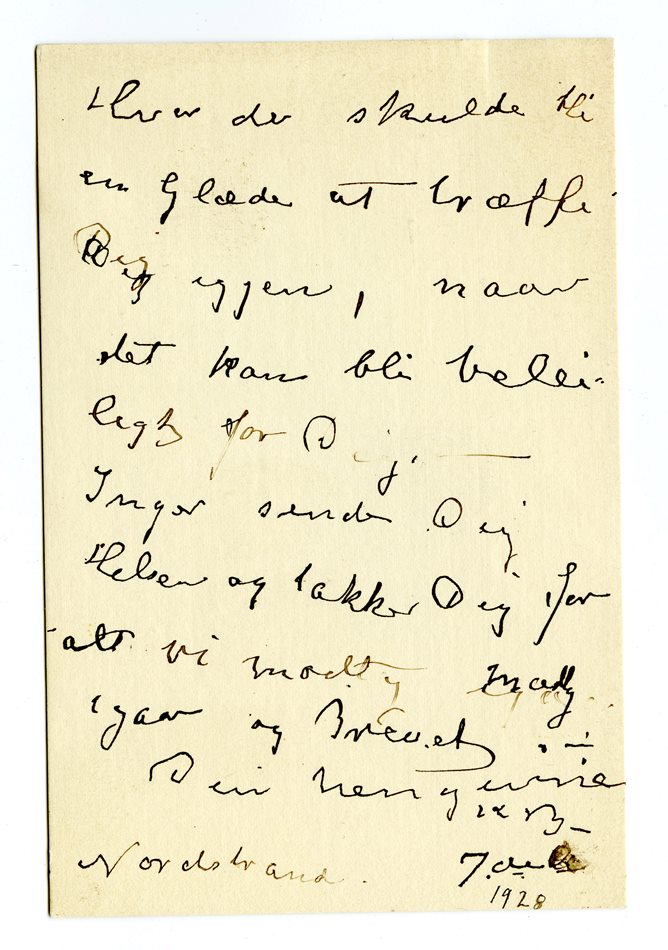 Hvor der skulde bli
en Glæde at træffe
Dig igjen, naar
det kan bli belei-
ligt for Dig. —
Inger sender Dig
Helsen og takker Dig for
alt vi modtog
igaar og Brevet
Din hengivne
Nordstrand. 7. des
1928